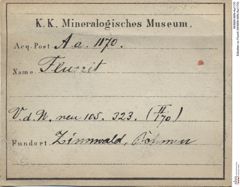 K. K. Mineralogisches Museum.
Acq. Post A.a. 1870.
Name Fluorit
V.d.N. neu 105. 323. (II/170)
Fundort Zinnwald, Böhmen